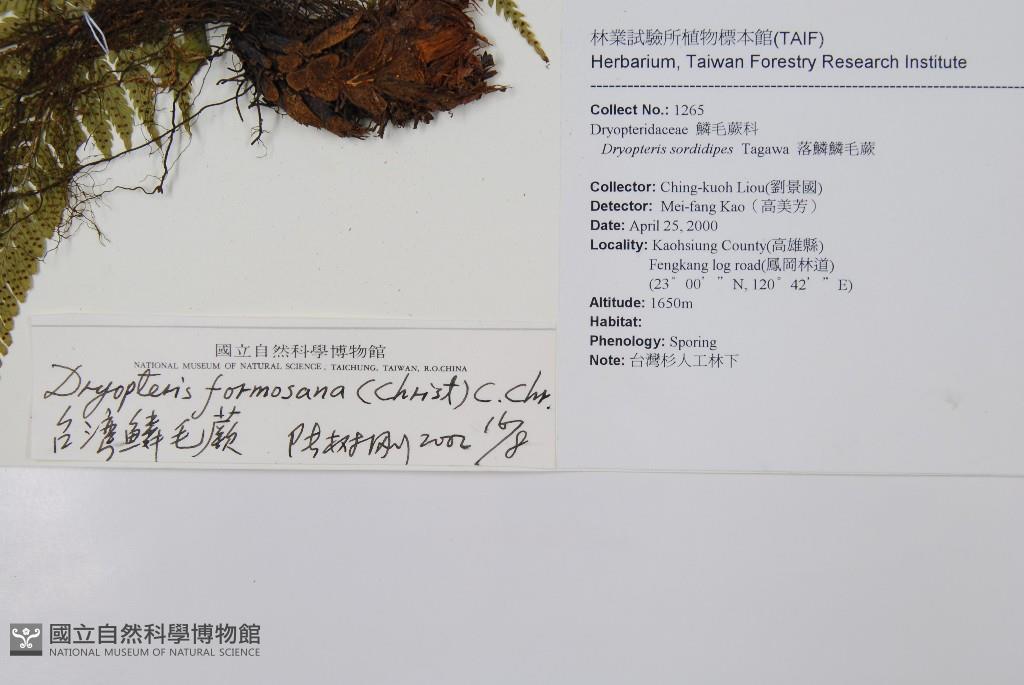 林業試驗所植物標本館(TAIF)
Herbarium, Taiwan Forestry Research Institute
Collect No.: 1265
Dryopteridaceae 鱗毛蕨科
Dryopteris sordidipes Tagawa 落鱗鱗毛蕨
Collector: Ching-kuoh Liou(劉景國)
Detector: Mei-fang Kao（高美芳）
Date: April 25, 2000
Locality: Kaohsiung County(高雄縣)
Fengkang log road(鳳岡林道)
(23° 00’ ” N, 120° 42’ ” E)
Altitude: 1650m
Habitat:
Phenology: Sporing
Note: 台灣杉人工林下
國立自然科學博物館
NATIONAL MUSEUM OF NATURAL SCIENCE, TAICHUNG, TAIWAN, R.O.CHINA
Dryopteris formosana (Christ) C. Chr.
台湾鱗毛蕨 2002
國立自然科學博物館
NATIONAL MUSEUM OF NATURAL SCIENCE